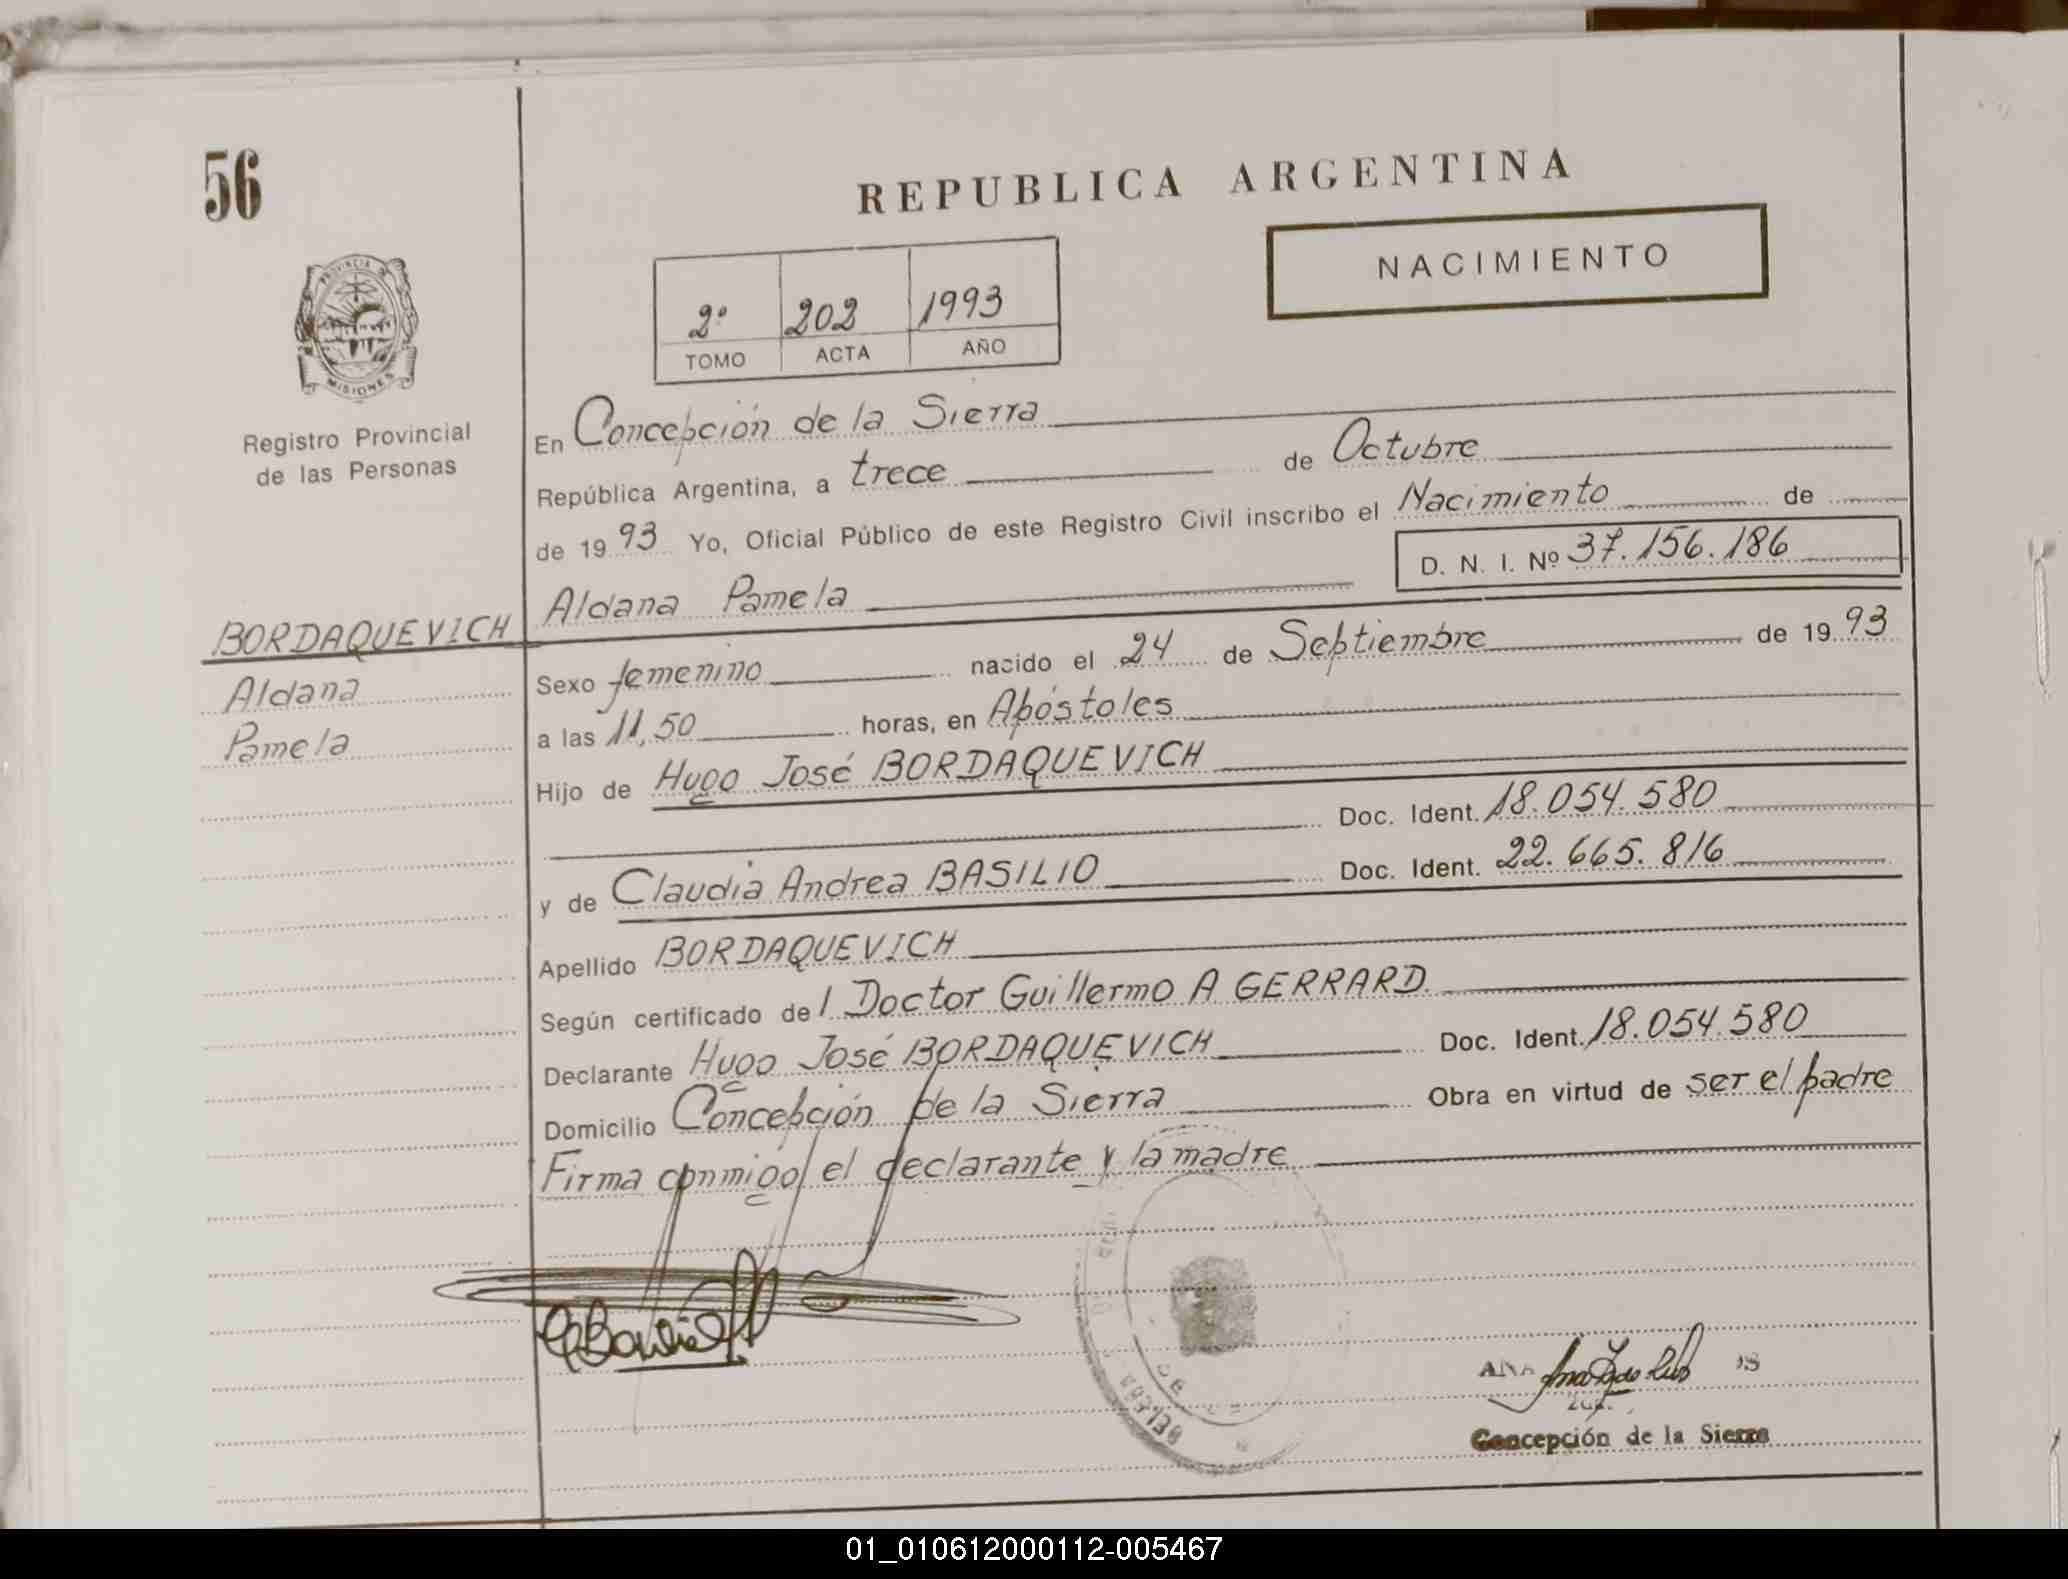 56
REPUBLICA ARGENTINA
NACIMIENTO
2º 202 1993
TOMO ACTA AÑO
PROVINCIA DE
MISIONES
Registro Provincial
de las Personas
En Concepción de la Sierra
República Argentina, a trece de Octubre
de 1993 Yo, Oficial Público de este Registro Civil inscribo el Nacimiento de
D. N. I. Nº 37.156.186
Aldana Pamela
BORDAQUEVICH
Aldana
Pamela
Sexo femenino nacido el 24 de Septiembre de 1993
a las 11,50 horas, en Apóstoles
Hijo de Hugo José BORDAQUEVICH
Doc. Ident. 18.054.580
y de Claudia Andrea BASILIO Doc. Ident. 22.665.816
Apellido BORDAQUEVICH
Según certificado del Doctor Guillermo A GERRARD
Declarante Hugo José BORDAQUEVICH Doc. Ident. 18.054.580
Domicilio Concepción de la Sierra Obra en virtud de ser el padre
Firma conmigo el declarante y la madre
ANA
Concepción de la Sierra
01_010612000112-005467